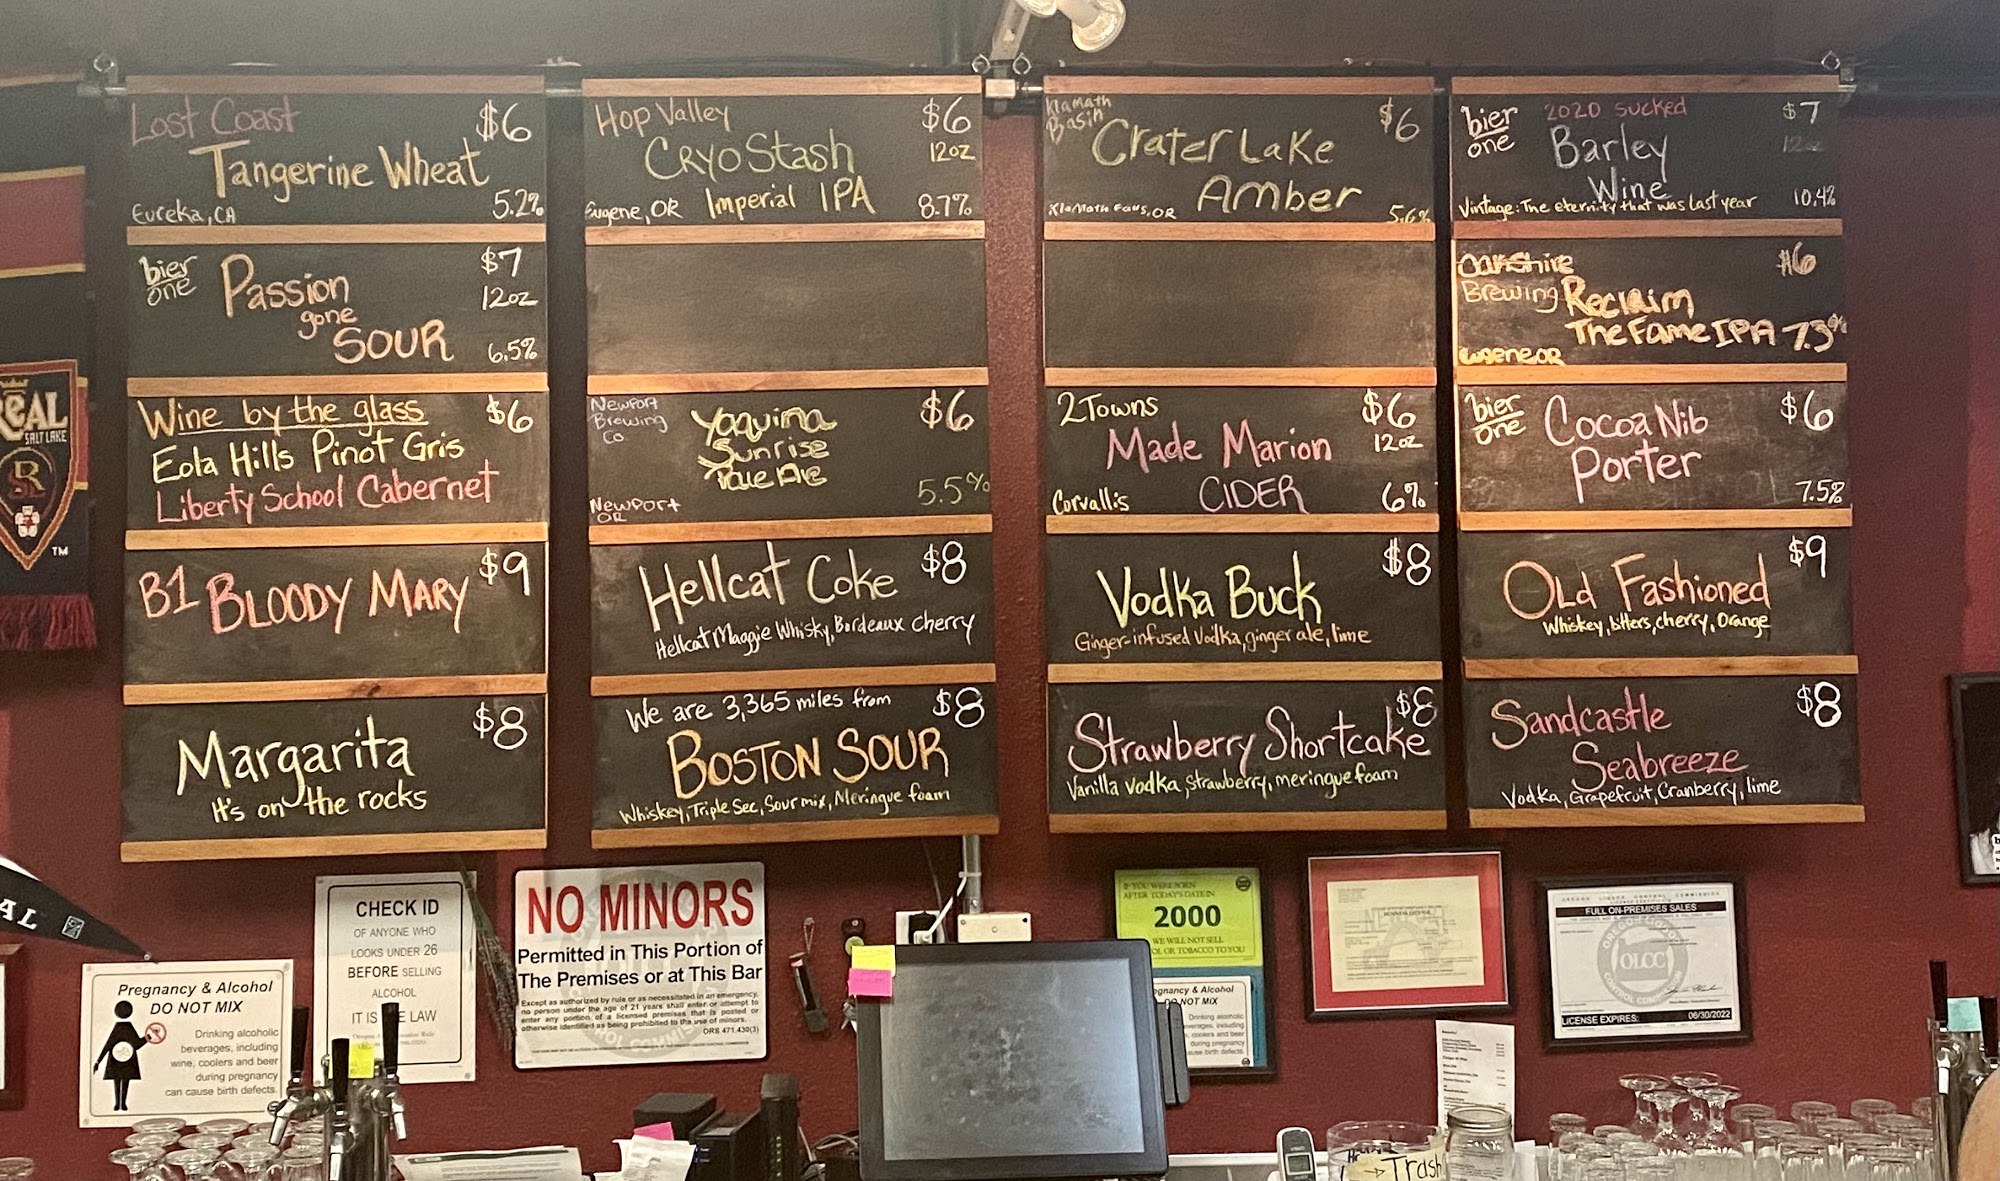 Lost Coast $6
Tangerine Wheat
Eureka, CA 5.2%
bier one $7
Passion 12oz
gone
SOUR 6.5%
Wine by the glass $6
Eola Hills Pinot Gris
Liberty School Cabernet
B1 BLOODY MARY $9
Margarita $8
It's on the rocks
Hop Valley $6
CRYO Stash 12oz
Eugene, OR Imperial IPA 8.7%
Newport Brewing Co $6
Yaquina
Sunrise
Pale Ale
Newport OR 5.5%
Hellcat Coke $8
Hellcat Maggie Whisky, Bordeaux cherry
We are 3,365 miles from $8
BOSTON SOUR
Whiskey, Triple Sec, Sour mix, Meringue foam
Klamath Basin $6
Crater Lake
Amber
Klamath Falls, OR 5.6%
2Towns $6
Made Marion 12oz
Corvallis CIDER 6%
Vodka Buck $8
Ginger-infused Vodka, ginger ale, lime
Strawberry Shortcake $8
Vanilla Vodka, Strawberry, meringue foam
bier one 2020 sucked $7
Barley 12oz
Wine
Vintage: The eternity that was last year 10.4%
Oakshire $6
Brewing Reclaim
The Fame IPA 7.3%
Eugene, OR
bier one Cocoa Nib $6
Porter
7.5%
Old Fashioned $9
Whiskey, bitters, cherry, Orange
Sandcastle $8
Seabreeze
Vodka, Grapefruit, Cranberry, lime
REAL
SALT LAKE
TM
AL
Pregnancy & Alcohol
DO NOT MIX
Drinking alcoholic
beverages, including
wine, coolers and beer
during pregnancy
can cause birth defects.
CHECK ID
OF ANYONE WHO
LOOKS UNDER 26
BEFORE SELLING
ALCOHOL
IT IS THE LAW
NO MINORS
Permitted in This Portion of
The Premises or at This Bar
Except as authorized by rule or as necessitated in an emergency,
no person under the age of 21 years shall enter or attempt to
enter any portion of a licensed premises that is posted or
otherwise identified as being prohibited to the use of minors.
ORS 471.430(3)
IF YOU WERE BORN
AFTER TODAY'S DATE IN
2000
WE WILL NOT SELL
OL OR TOBACCO TO YOU
gnancy & Alcohol
DO NOT MIX
Drinking alcoholic
verages, including
coolers and beer
during pregnancy
ause birth defects.
OREGON LIQUOR CONTROL COMMISSION
LICENSE CERTIFICATE
FULL ON-PREMISES SALES
OLCC
LICENSE EXPIRES: 06/30/2022
Trash